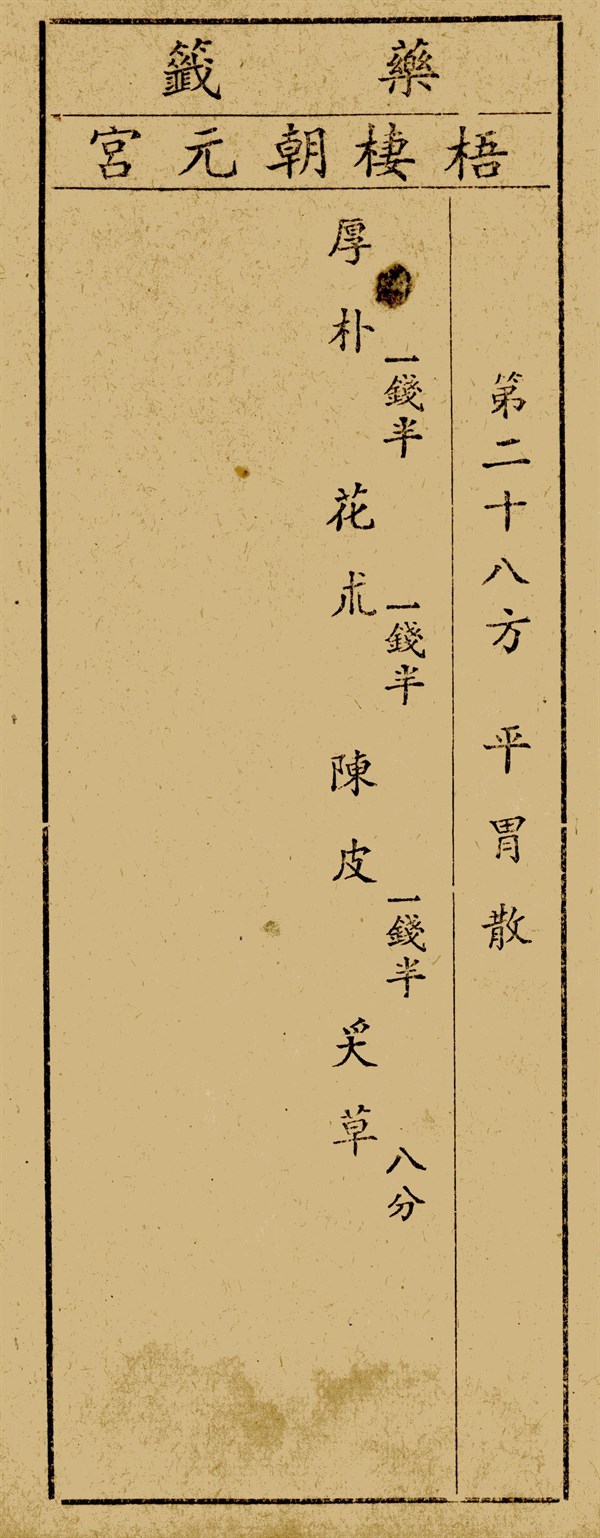 藥籤
梧棲朝元宮
第二十八方 平胃散
厚朴 一錢半 花朮 一錢半 陳皮 一錢半 炙草 八分